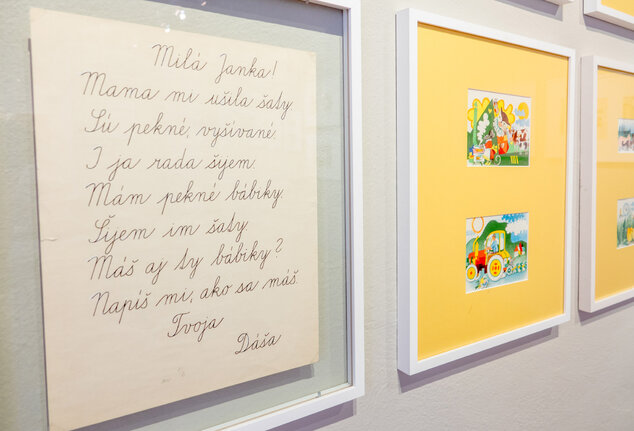 Milá Janka!
Mama mi ušila šaty.
Sú pekné, vyšívané.
I ja rada šijem.
Mám pekné bábiky.
Šijem im šaty.
Máš aj ty bábiky?
Napíš mi, ako sa máš.
Tvoja
Dáša